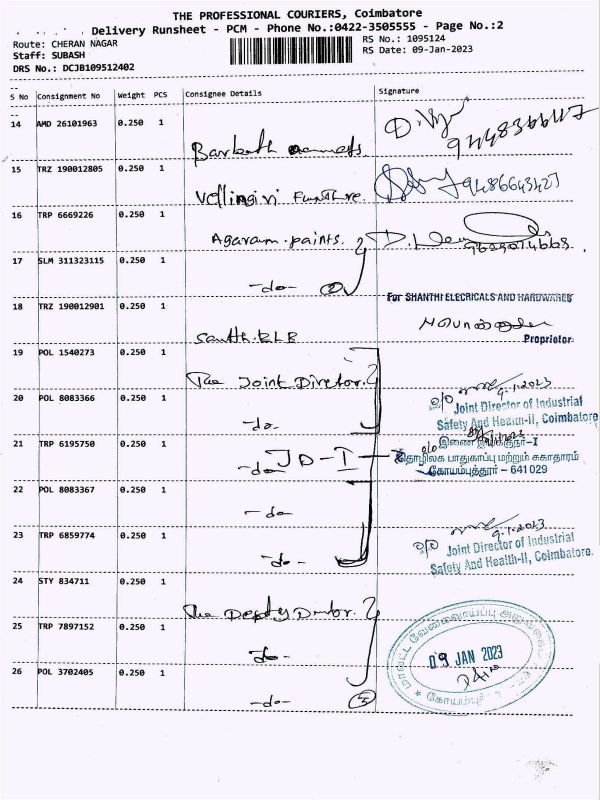 THE PROFESSIONAL COURIERS, Coimbatore
Delivery Runsheet - PCM - Phone No.:0422-3505555 - Page No.:2
Route: CHERAN NAGAR
RS No.: 1095124
Staff: SUBASH
RS Date: 09-Jan-2023
DRS No.: DCJB109512402
S No Consignment No Weight PCS Consignee Details Signature
14 AMD 26101963 0.250 1
15 TRZ 190012805 0.250 1
Vellingiri Furniture 9486643427
16 TRP 6669226 0.250 1
Agaram paints.
17 SLM 311323115 0.250 1
-do- 2
For SHANTHI ELECRICALS AND HARDWARES
18 TRZ 190012901 0.250 1
Proprietor
19 POL 1540273 0.250 1
The Joint Director.
9.1.2023
20 POL 8083366 0.250 1
-do-
Joint Director of Industrial
Safety And Health-II, Coimbatore
21 TRP 6195750 0.250 1
-do- JD-I
இணை இயக்குநர்-I
தொழிலக பாதுகாப்பு மற்றும் சுகாதாரம்
கோயம்புத்தூர் - 641 029
22 POL 8083367 0.250 1
-do-
23 TRP 6859774 0.250 1
-do-
9.1.2023
Joint Director of Industrial
Safety And Health-II, Coimbatore.
24 STY 834711 0.250 1
The Deputy Director.
25 TRP 7897152 0.250 1
-do-
09 JAN 2023
26 POL 3702405 0.250 1
-do-